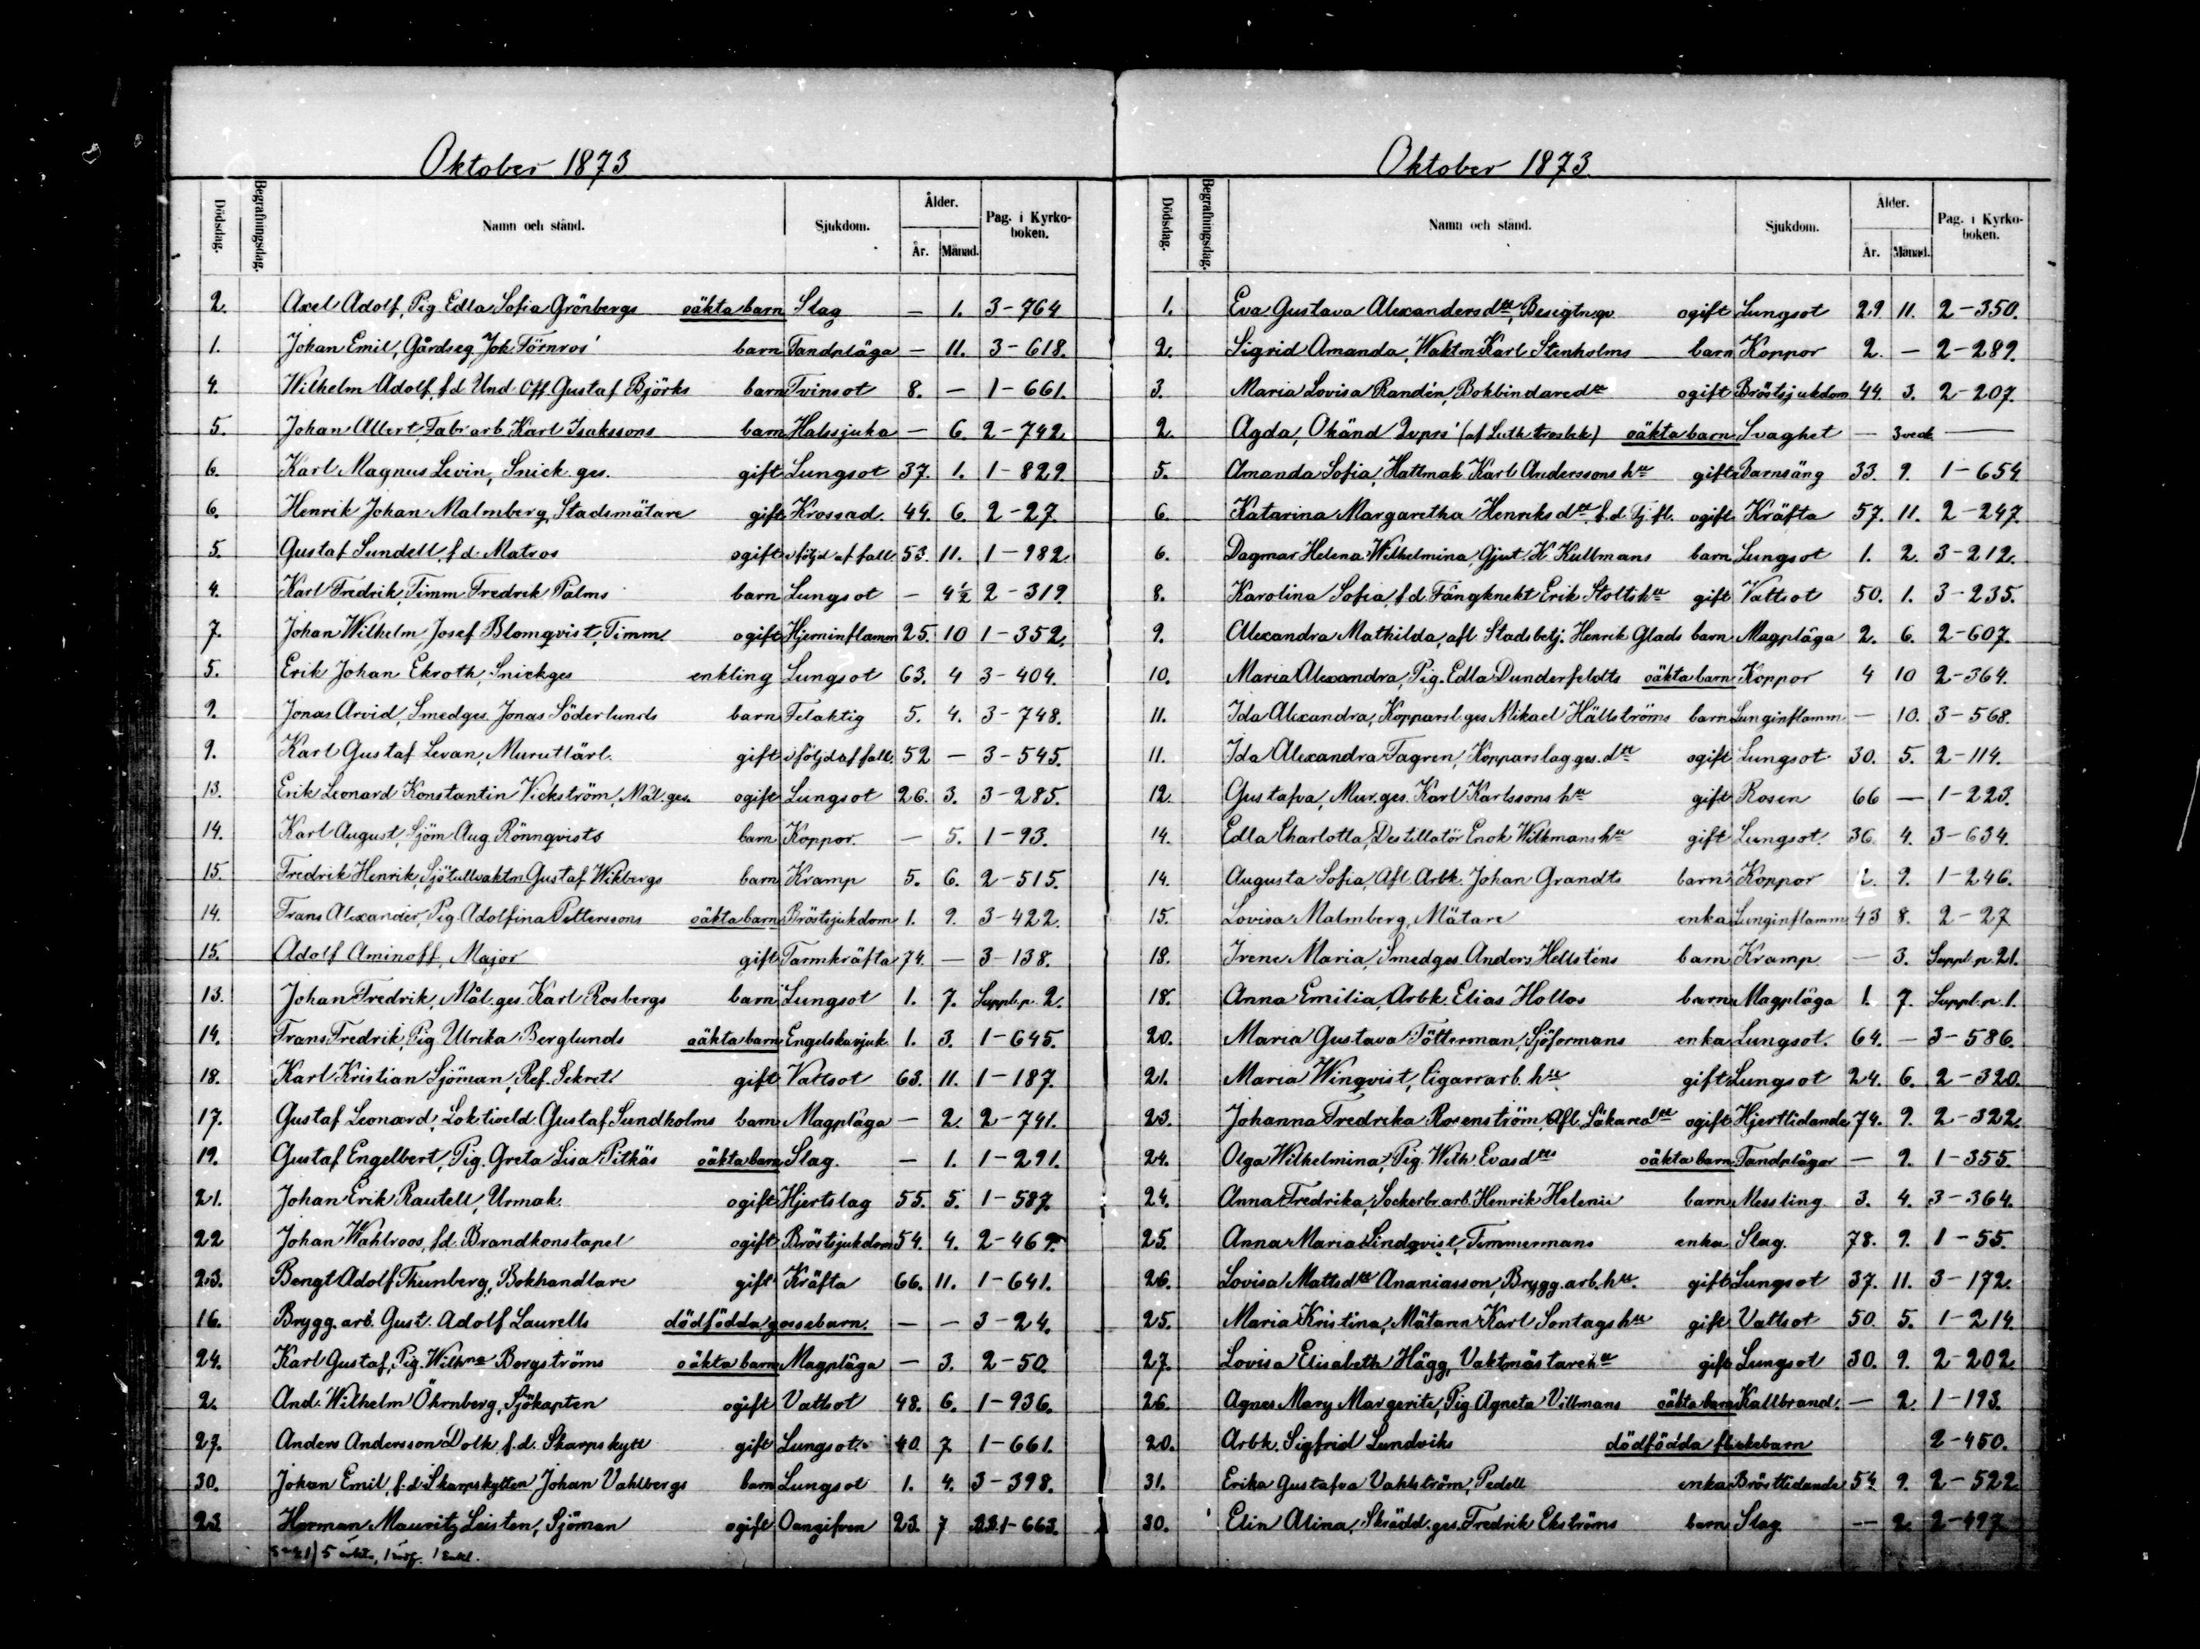 Oktober 1873
Dödsdag. Begrafningsdag. Namn och stånd. Sjukdom. Ålder. År. Månad. Pag. i Kyrkoboken.
2. Axel Adolf, Pig Edla Sofia Grönbergs oäkta barn Slag — 1. 3-764
1. Johan Emil, Gårdseg. Joh Törnros' barn Tandplåga — 11. 3-618.
4. Wilhelm Adolf, f.d. Und. Off. Gustaf Björks barn Tvinsot 8. — 1-661.
5. Johan Albert, Fabr arb. Karl Isakssons barn Halssjuka — 6. 2-742.
6. Karl Magnus Levin, Snick. ges. gift Lungsot 37. 1. 1-829.
6. Henrik Johan Malmberg, Stadsmätare gift Krossad. 44. 6. 2-27.
5. Gustaf Sundell, f.d. Matros ogift i följd af fall. 53. 11. 1-982.
4. Karl Fredrik, Timm Fredrik Palms barn Lungsot — 4½ 2-319.
7. Johan Wilhelm Josef Blomqvist, Timm. ogift Hjerninflamm 25. 10 1-352.
5. Erik Johan Ekroth, Snickges enkling Lungsot 63. 4 3-404.
9. Jonas Arvid, Smedges Jonas Söderlunds barn Felaktig 5. 4. 3-748.
9. Karl Gustaf Levan, Murutlärl. gift i följd af fall. 52 — 3-545.
13. Erik Leonard Konstantin Vickström, Mål. ges. ogift Lungsot 26. 3. 3-285.
14. Karl August, Sjöm Aug Rönnqvists barn Koppor. — 5. 1-93.
15. Fredrik Henrik, Sjötullvaktm Gustaf Wikbergs barn Kramp 5. 6. 2-515.
14. Frans Alexander, Pig Adolfina Petterssons oäkta barn Bröstsjukdom 1. 9. 3-422.
15. Adolf Aminoff, Major gift Tarmkräfta 74. — 3-138.
13. Johan Fredrik, Mål. ges. Karl Rosbergs barn Lungsot 1. 7. Suppl. p. 2.
14. Frans Fredrik, Pig Ulrika Berglunds oäkta barn Engelska sjuk. 1. 3. 1-645.
18. Karl Kristian Sjöman, Ref. Sekret. gift Vattsot 63. 11. 1-187.
17. Gustaf Leonard, Lok tiveld. Gustaf Sundholms barn Magplåga — 2. 2-741.
19. Gustaf Engelbert, Pig. Greta Lisa Pitkäs oäkta barn Slag. — 1. 1-291.
21. Johan Erik Rautell, Urmak. ogift Hjertslag 55. 5. 1-587.
22 Johan Wahlroos, f.d. Brandkonstapel ogift Bröstsjukdom 54. 4. 2-469.
23. Bengt Adolf Thunberg, Bokhandlare gift Kräfta 66. 11. 1-641.
16. Brygg. arb. Gust. Adolf Laurells dödfödda gossebarn. — — 3-24.
24. Karl Gustaf, Pig. Wilhna Bergströms oäkta barn Magplåga — 3. 2-50.
2. And. Wilhelm Öhrnberg, Sjökapten ogift Vattsot 48. 6. 1-936.
27. Anders Andersson Dolk, f.d. Skarpskytt gift Lungsot. 40. 7. 1-661.
30. Johan Emil, f.d. Skarpskytten Johan Vahlbergs barn Lungsot 1. 4. 3-398.
23. Herman Mauritz Leisten, Sjöman ogift Oangifven 23. 7 1-663.
Oktober 1873.
Dödsdag. Begrafningsdag. Namn och stånd. Sjukdom. Ålder. År. Månad. Pag. i Kyrkoboken.
1. Eva Gustava Alexandersdtr, Besigtn.gv. ogift Lungsot 29. 11. 2-350.
2. Sigrid Amanda, Waktm Karl Stenholms barn Koppor 2. — 2-289.
3. Maria Lovisa Randén, Bokbindaredtr ogift Bröstsjukdom 44. 3. 2-207.
2. Agda, Okänd (af Luth. trosbek.) oäkta barn Svaghet — 3 veck. —
5. Amanda Sofia, Hattmak Karl Anderssons htru gift Barnsäng 33. 9. 1-654.
6. Katarina Margaretha Henriksdtr, f.d. Tj.fl. ogift Kräfta 57. 11. 2-247.
6. Dagmar Helena Wilhelmina, Gjut. K Kullmans barn Lungsot 1. 2. 3-212.
8. Karolina Sofia, f.d. Fångknekt Erik Stolts htru gift Vattsot 50. 1. 3-235.
9. Alexandra Mathilda, afl. Stadsbetj. Henrik Glads barn Magplåga 2. 6. 2-607.
10. Maria Alexandra, Pig. Edla Dunderfeldts oäkta barn Koppor 4 10 2-364.
11. Ida Alexandra, Kopparsl. ges Mikael Hällströms barn Lunginflamm. — 10. 3-568.
11. Ida Alexandra Tagren, Kopparslag. ges. dtr ogift Lungsot 30. 5. 2-114.
12. Gustafva, Mur. ges. Karl Karlssons htru gift Rosen 66 — 1-223.
14. Edla Charlotta, Destillatör Enok Wilkmans htru gift Lungsot. 36 4. 3-634.
14. Augusta Sofia, Afl. Arbk. Johan Grandts barn Koppor 2. 9. 1-246.
15. Lovisa Malmberg, Mätare enka Lunginflamm 43 8. 2-27
18. Irene Maria, Smedges. Anders Hellsténs barn Kramp — 3. Suppl. p. 21.
18. Anna Emilia, Arbk. Elias Hollos barn Magplåga 1. 7. Suppl. p. 1.
20. Maria Gustava Tötterman, Sjöformans enka Lungsot. 64. — 3-586.
21. Maria Winqvist, Cigarrarb. htru gift Lungsot 24. 6. 2-320.
23. Johanna Fredrika Rosenström, Afl. Läkaredtr ogift Hjertlidande 74. 9. 2-322.
24. Olga Wilhelmina, Pig. Wilh Evasdtrs oäkta barn Tandplågor — 9. 1-355.
24. Anna Fredrika, Sockerbr. arb. Henrik Helenii barn Messling. 3. 4. 3-364.
25. Anna Maria Lindqvist, Timmermans enka Slag. 78. 9. 1-55.
26. Lovisa Mattsdtr Ananiasson, Brygg. arb. htru gift Lungsot 37. 11. 3-172.
25. Maria Kristina, Mätaren Karl Sontags htru gift Vattsot 50. 5. 1-214.
27. Lovisa Elisabeth Hägg, Vaktmästarehtru gift Lungsot 30. 9. 2-202.
26. Agnes Mary Margerite, Pig Agneta Villmans oäkta barn Kallbrand. — 2. 1-193.
20. Arbk. Sigfrid Lundviks dödfödda flickebarn 2-450.
31. Erika Gustafva Vahlström, Pedell enka Bröstlidande 54. 9. 2-522.
30. Elin Alina, Skrädd. ges. Fredrik Ekströms barn Slag — 2. 2-497.